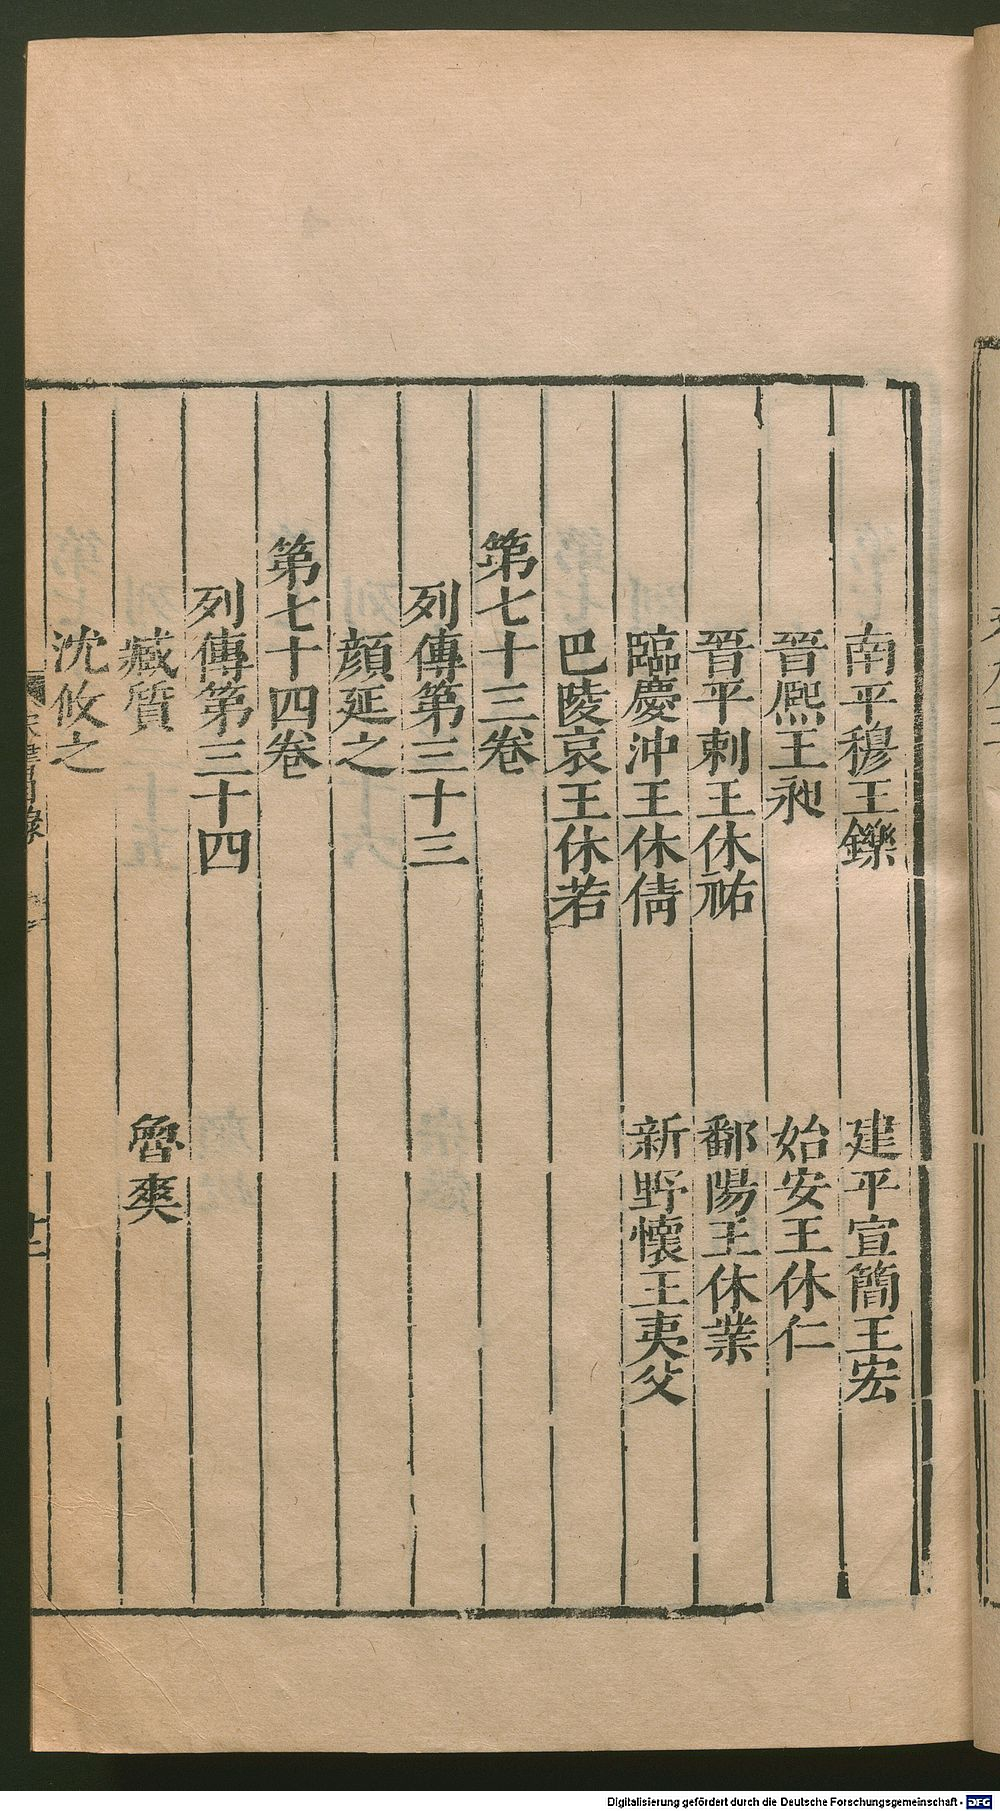 南平穆王鑠　建平宣簡王宏
晉熙王昶　始安王休仁
晉平剌王休祐　鄱陽王休業
臨慶沖王休倩　新野懷王夷父
巴陵哀王休若
第七十三卷
列傳第三十三
顏延之
第七十四卷
列傳第三十四
臧質　魯爽
沈攸之
Digitalisierung gefördert durch die Deutsche Forschungsgemeinschaft - DFG